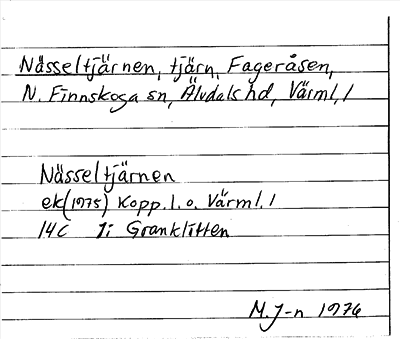 Nässeltjärnen, tjärn, Fageråsen,
N. Finnskoga sn, Älvdals hd, Värml. l
Nässeltjärnen
ek (1975) Kopp. l. o. Värml. l
14C 7i Granklitten
M. J-n 1976